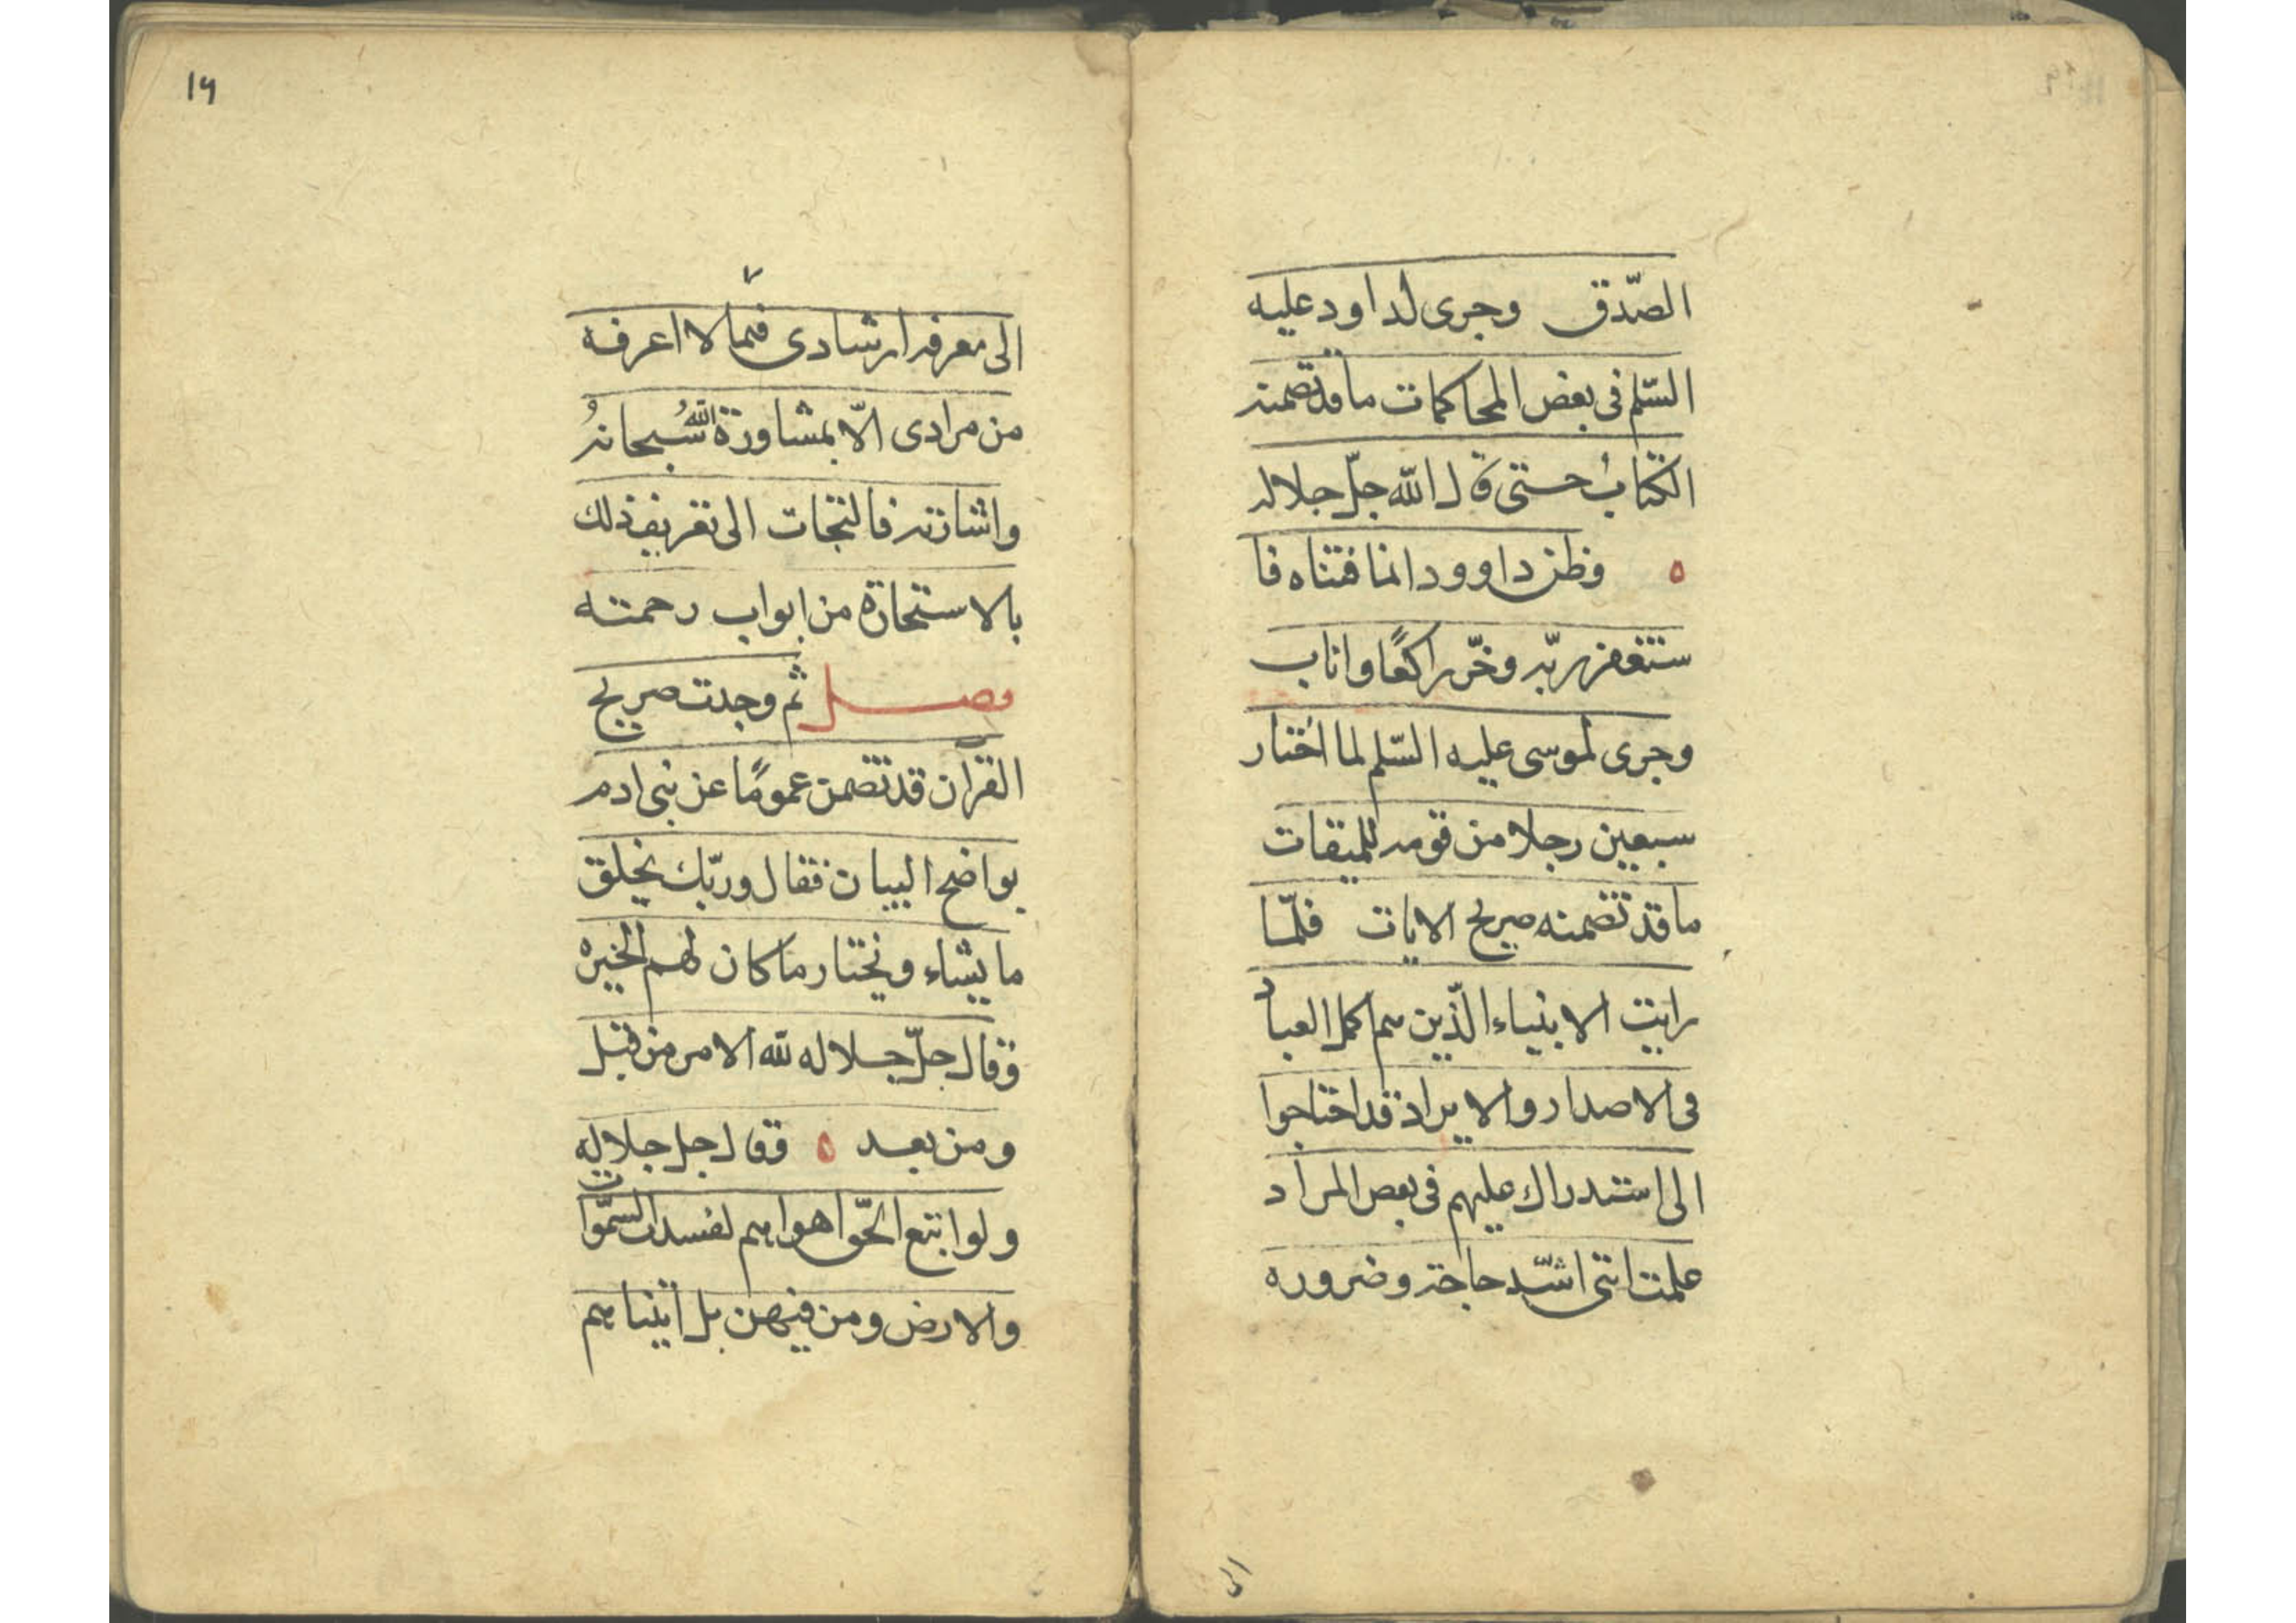 الصّدق وجرى لداود عليه
السّلم فى بعض المحاكمات ما قد تضمنه
الكتاب حتى قال الله جلّ جلاله
ه وظن داوود انما فتناه فا
ستغفر ربّه وخرّ راكعًا واناب
وجرى لموسى عليه السّلم لما اختار
سبعين رجلا من قومه للميقات
ما قد تضمنه صريح الايات فلمّا
رايت الانبياء الّذين هم اكمل العباد
فى الاصدار والايراد قد احتاجوا
الى استدراك عليهم فى بعض المراد
علمت اننى اشدّ حاجة وضروره
الى
١٩
٧
الى معرفه ارشادى فيما لا اعرفه
من مرادى الّا بمشاورة الله سُبحانهُ
واشارته فالتجات الى تعريف ذلك
بالاستخارة من ابواب رحمته
فصل ثم وجدت صريح
القرآن قد تضمن عمومًا عن بنى ادم
بواضح البيان فقال وربّك يخلق
ما يشاء ويختار ما كان لهم الخيره
وقال جلّ جلاله لله الامر من قبل
ومن بعد ه وقال جل جلاله
ولو اتبع الحقّ اهواهم لفسدت السمّوات
والارض ومن فيهن بل اتيناهم